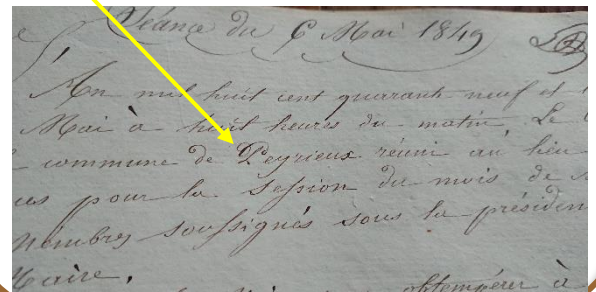 Séance du 6 Mai 1849
An mil huit cent quarante neuf et
Mai à huit heures du matin, Le
commune de Peyrieux réuni au lieu
pour la Session du mois de
membres soussignés sous la présiden
Maire.
obtempérer à